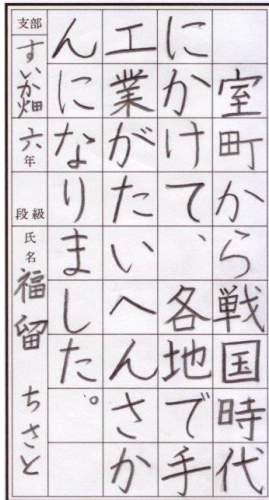 室町から戦国時代
にかけて、各地で手
工業がたいへんさか
んになりました。
支部 すいか畑 六年 段級 氏名 福留 ちさと